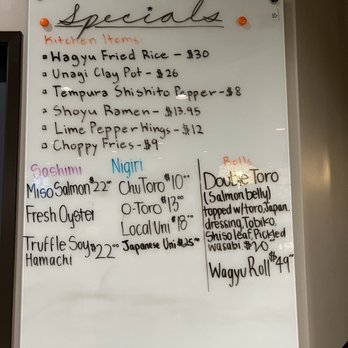 Specials
Kitchen Items:
Wagyu Fried Rice - $30
Unagi Clay Pot - $26
Tempura Shishito Pepper - $8
Shoyu Ramen - $13.95
Lime Pepper Wings - $12
Choppy Fries - $9
Sashimi
Miso Salmon $22.00
Fresh Oyster
Truffle Soy $22.00
Hamachi
Nigiri
ChuToro $10.00
O-Toro $13.00
Local Uni $18.00
Japanese Uni $25.00
Rolls
Double Toro
(Salmon belly)
topped w/toro, Japan
dressing, Tobiko,
Shiso leaf, Pickled
wasabi. $20
Wagyu Roll $49.00